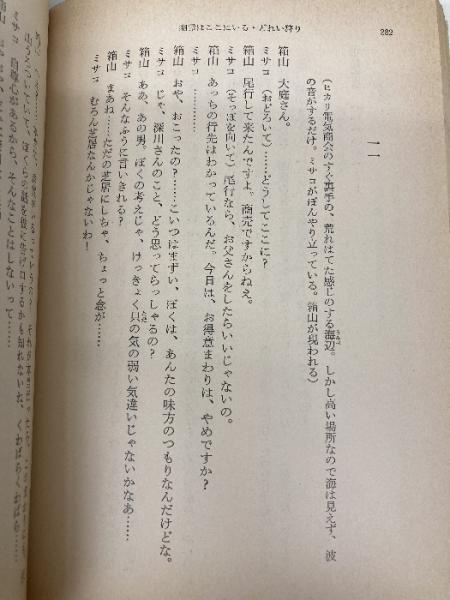 282
幽霊はここにいる・どれい狩り
一一
(ヒカリ電気商会のすぐ裏手の、荒れはてた感じのする海辺。しかし高い場所なので海は見えず、波
の音がするだけ。ミサコがぼんやり立っている。箱山が現われる)
箱山 大庭さん。
ミサコ (おどろいて)……どうしてここに?
箱山 尾行して来たんですよ。商売ですからねえ。
ミサコ (そっぽを向いて)尾行なら、お父さんをしたらいいじゃないの。
箱山 あっちの行先はわかっているんだ。今日は、お得意まわりは、やめですか?
ミサコ ………………
箱山 おや、おこったの?……こいつはまずい、ぼくは、あんたの味方のつもりなんだけどな。
ミサコ じゃ、深川さんのこと、どう思ってらっしゃるの?
箱山 ああ、あの男。ぼくの考えじゃ、けっきょく只の気の弱い気違いじゃないかなあ……
ミサコ そんなふうに言いきれる?
箱山 まあね……ただの芝居にしちゃ、ちょっと念が……
ミサコ むろん芝居なんかじゃないわ!
ぼくらの話を彼に告げ口するかも知れないな、くわばらくわばら……
ミサコ 自尊心があるから、そんなことはしないって……